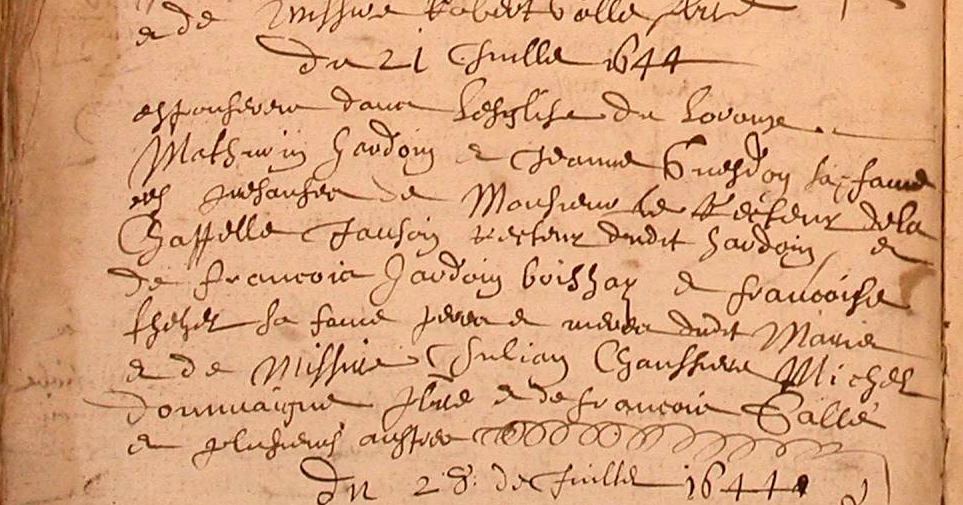 e de Missire Robert Valle pbre
du 21 Juille 1644
espouserent dans lesglise de Lovoug
Mathurin Hardoin e Jeanne Guesdon sa fame
es presances de Monsieur le Recteur de la
Chappelle Janson Recteur dudit hardoin e
de francois Jardoin boishay e francoise
sa fame peres e meres dudit Marie
e de Missire Julian Chaussiere Michel
pbre e de francois Salle
e plusieurs austres
du 28 de Juille 1644